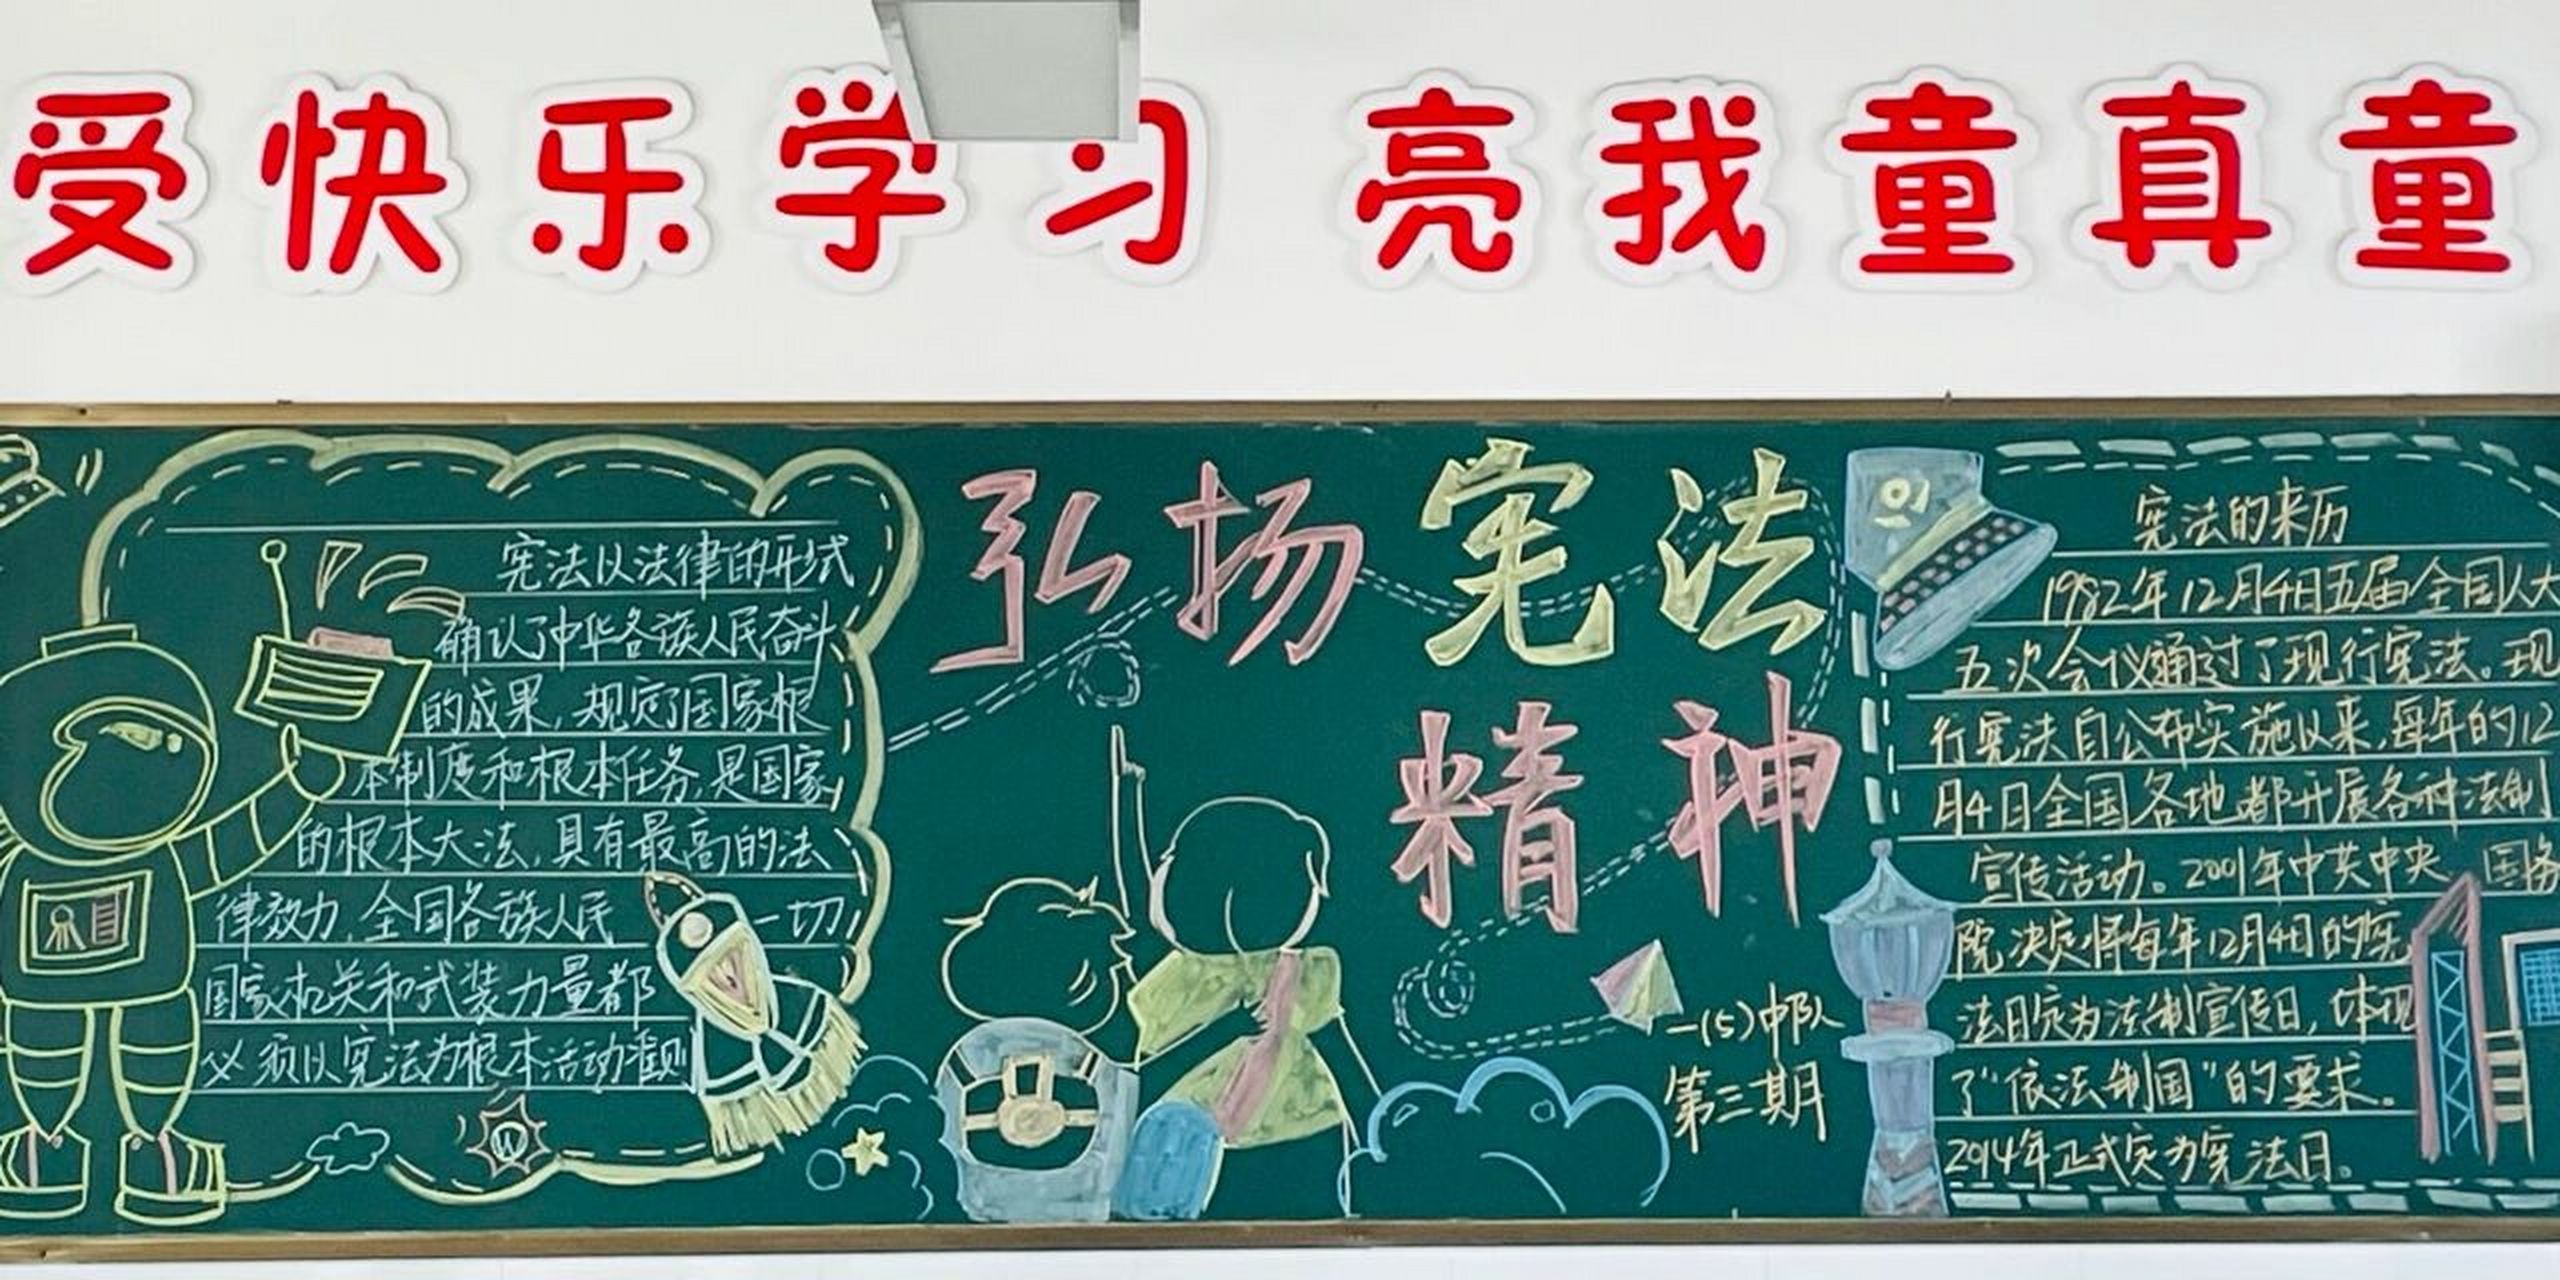 受快乐学习 亮我童真童
弘扬宪法
精神
一(5)中队
第三期
宪法以法律的形式
确认了中华各族人民奋斗
的成果,规定了国家根
本制度和根本任务,是国家
的根本大法,具有最高的法
律效力,全国各族人民 一切
国家机关和武装力量都
必须以宪法为根本活动准则
W
宪法的来历
1982年12月4日五届全国人大
五次会议通过了现行宪法。现
行宪法自公布实施以来,每年的12
月4日全国各地都开展各种法制
宣传活动。2001年中共中央、国务
院决定将每年12月4日的宪
法日定为法制宣传日,体现
了“依法制国”的要求。
2014年正式定为宪法日。